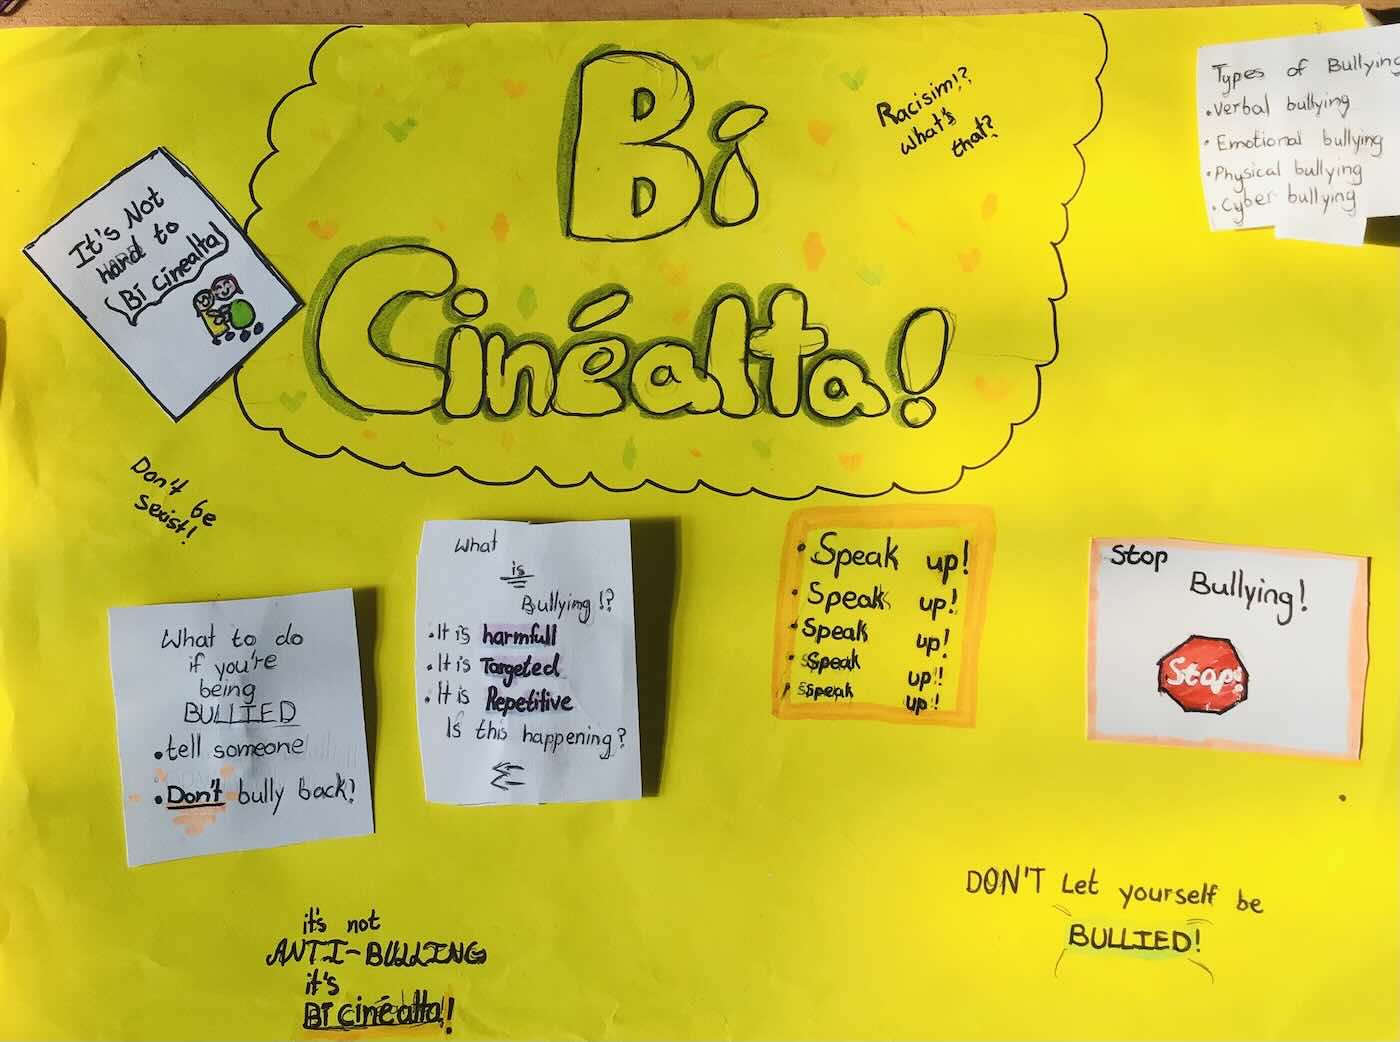 Bí
Cinéalta!
Racisim!?
What's
that?
Types of Bullying
• Verbal bullying
• Emotional bullying
• Physical bullying
• Cyber bullying
It's Not
hard to
Bí cinéalta
Don't be
sexist!
What to do
if you're
being
BULLIED
• tell someone
• Don't bully back!
What
is
Bullying!?
• It is harmfull
• It is Targeted
• It is Repetitive
Is this happening?
• Speak up!
• Speak up!
• Speak up!
• Speak up!!
• Speak up!!
Stop
Bullying!
Stop!
it's not
ANTI-BULLING
it's
Bí cinéalta!
DON'T Let yourself be
BULLIED!